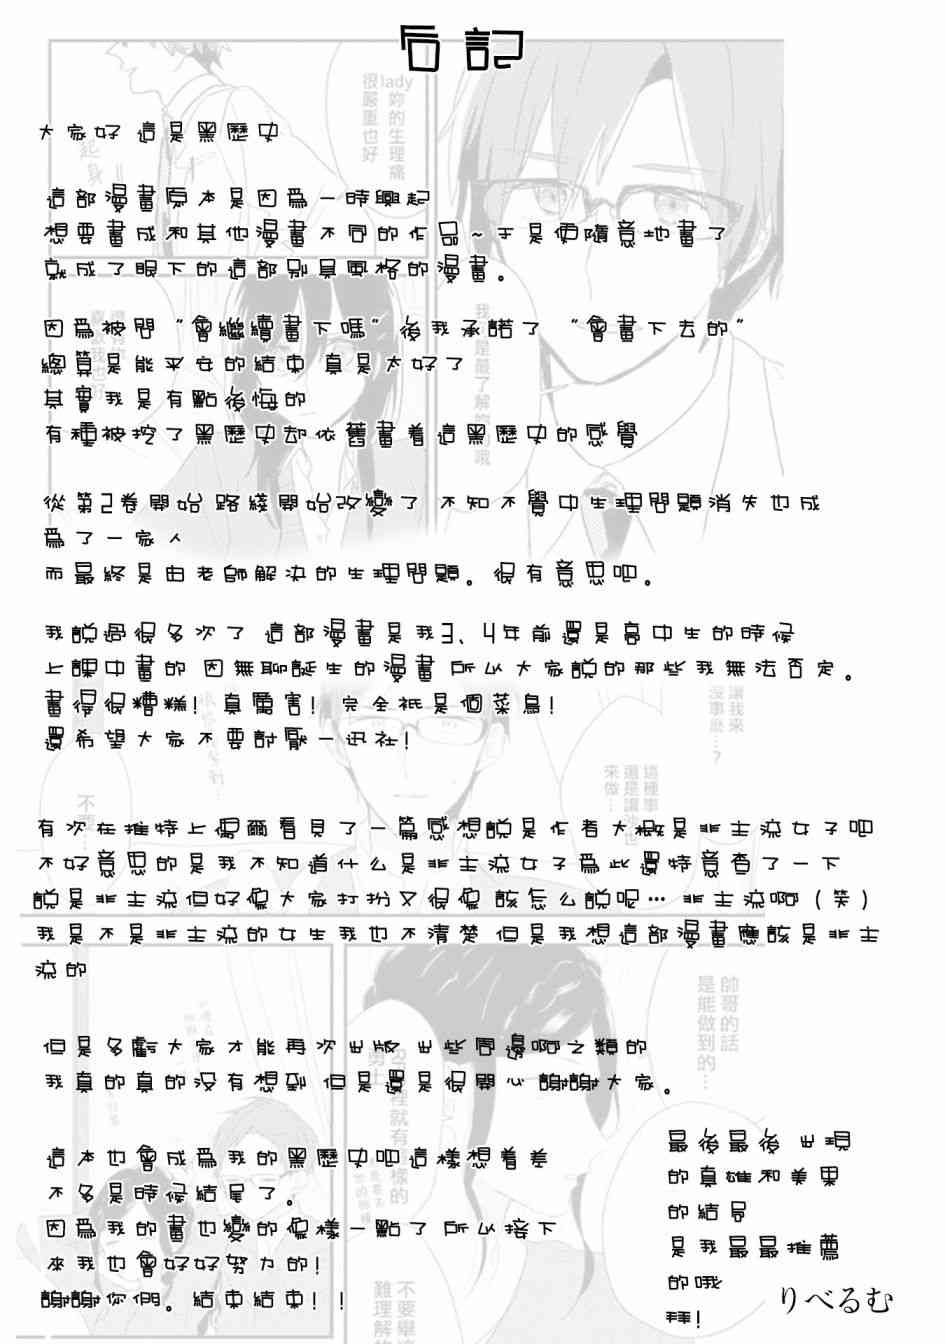 后記
大家好 這是黑歷史
這部漫畫原本是因為一時興起
想要畫成和其他漫畫不同的作品~于是便隨意地畫了
就成了眼下的這部別具風格的漫畫。
因為被問“會繼續畫下嗎”後我承諾了“會畫下去的”
總算是能平安的結束 真是太好了
其實我是有點後悔的
有種被挖了黑歷史却依舊畫着這黑歷史的感覺
從第2卷開始 路綫開始改變了 不知不覺中生理問題消失也成
為了一家人
而最終是由老師解決的生理問題。很有意思吧。
我説過很多次了 這部漫畫是我3、4年前還是高中生的時候
上課中畫的 因無聊誕生的漫畫 所以大家説的那些我無法否定。
畫得很糟糕! 真厲害! 完全衹是個菜鳥!
還希望大家不要討厭一迅社!
有次在推特上偶爾看見了一篇感想説是作者大概是非主流女子吧
不好意思的是我不知道什么是非主流女子為此還特意查了一下
説是非主流但好像大家打扮又很像 該怎么説呢…非主流啊(笑)
我是不是非主流的女生我也不清楚 但是我想這部漫畫應該是非主
流的
但是多虧大家才能再次出版 出些周邊啊之類的
我真的真的没有想到 但是還是很開心 謝謝大家。
這本也會成為我的黑歷史吧這樣想着差
不多是時候結尾了。
因為我的畫也變的像樣一點了 所以接下
來我也會好好努力的!
謝謝你們。 結束結束!!
最後最後 出現
的真雄和美果
的結局
是我最最推薦
的哦
拜!
りべるむ
lady
妳的生理痛
很嚴重也好
起身
讓我來
沒事麽…?
這種事
還是讓
來做…
不要
帥哥的話
是能做到的…
難理解的